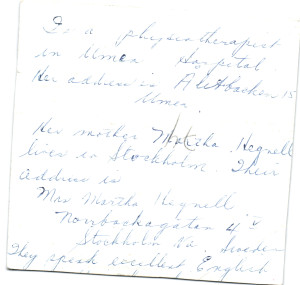 a physiotherapist
in Umea Hospital
Her address is 15
Umea.
Her mother Martha Hegnell
lives in Stockholm. Their
address is
Mrs Martha Hegnell
4
Stockholm Va. Sweden
They speak excellent English